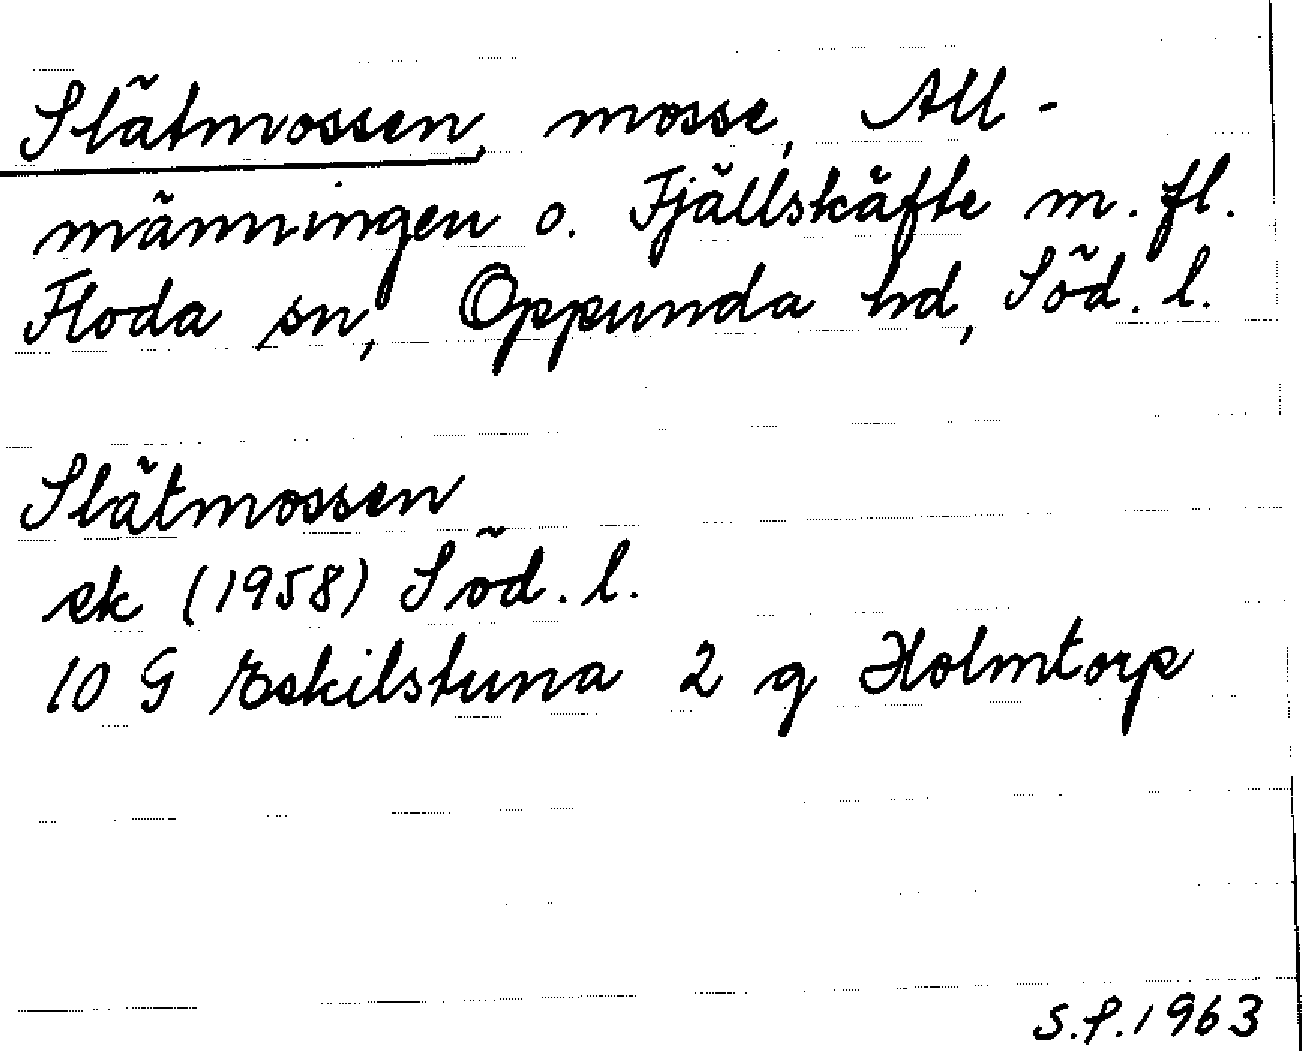 Slätmossen, mosse, All-
männingen o. Fjällskäfte m. fl.
Floda sn, Oppunda hd, Söd. l.
Slätmossen
ek (1958) Söd. l.
10 G Eskilstuna 2 g Holmtorp
S.P. 1963